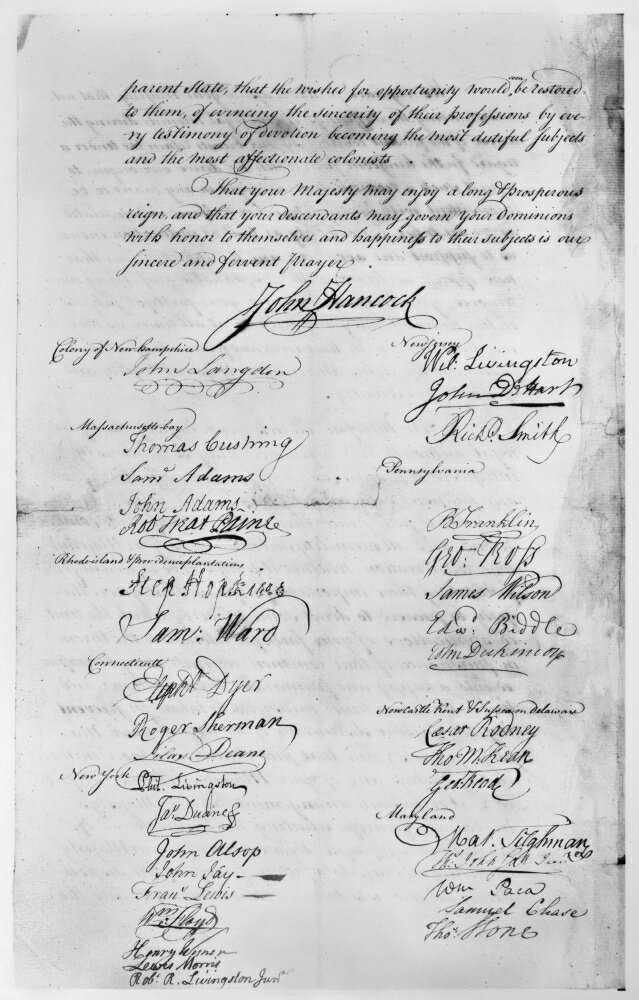 parent State, that the wished for opportunity would soon be restored
to them, of evincing the sincerity of their professions by eve-
ry testimony of devotion becoming the most dutiful subjects
and the most affectionate colonists
That your Majesty may enjoy a long & prosperous
reign, and that your descendants may govern your Dominions
with honor to themselves and happiness to their subjects is our
sincere and fervent prayer
John Hancock
Colony of New Hampshire
John Langdon
Massachusetts-bay
Thomas Cushing
Saml Adams
John Adams
Rob Treat Paine
Rhode island & providence plantations
Step Hopkins
Sam: Ward
Connecticutt
Elipht Dyer
Roger Sherman
Silas Deane
New York
Phil. Livingston
Jas Duane
John Alsop
John Jay
Frans Lewis
Wm Floyd
Henry Wisner
Lewis Morris
Robt R. Livingston Junr
New Jersey
Wil: Livingston
John D Hart
Richd Smith
Pennsylvania
B Franklin
Geo: Ross
James Wilson
Edwd Biddle
John Dickinson
Newcastle Kent & Sussex on Delaware
Cæsar Rodney
Tho M:Kean
Geo: Read
Maryland
Mat. Tilghman
Ths John Junior
Wm Paca
Samuel Chase
Thos Stone